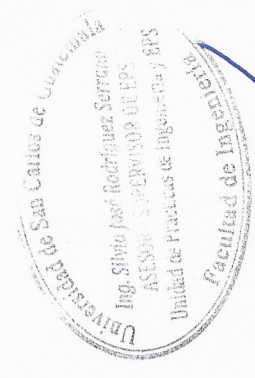 Universidad de San Carlos de Guatemala
Ing. Silvio José Rodríguez Serrano
ASESOR - SUPERVISOR DE EPS
Unidad de Prácticas de Ingeniería y EPS
Facultad de Ingeniería